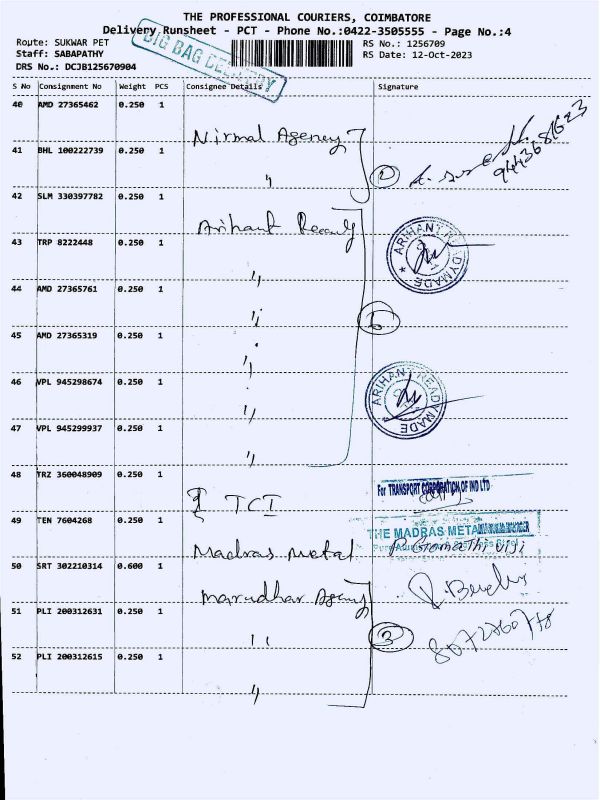 THE PROFESSIONAL COURIERS, COIMBATORE
Delivery Runsheet - PCT - Phone No.:0422-3505555 - Page No.:4
Route: SUKWAR PET
RS No.: 1256709
Staff: SABAPATHY
RS Date: 12-Oct-2023
DRS No.: DCJB125670904
BIG BAG DELIVERY
S No Consignment No Weight PCS Consignee Details Signature
40 AMD 27365462 0.250 1 Nirmal Agency
41 BHL 100222739 0.250 1 " 2
9443681623
42 SLM 330397782 0.250 1 Arihant Ready
ARIHANT READYMADE
43 TRP 8222448 0.250 1 "
44 AMD 27365761 0.250 1 " 6
45 AMD 27365319 0.250 1 "
46 VPL 945298674 0.250 1 "
ARIHANT READYMADE
47 VPL 945299937 0.250 1 "
48 TRZ 360048909 0.250 1 TCI
For TRANSPORT CORPORATION OF IND LTD
49 TEN 7604268 0.250 1 Madras metal
THE MADRAS METAL
50 SRT 302210314 0.600 1 Marudhar Agency
51 PLI 200312631 0.250 1 " 3
52 PLI 200312615 0.250 1 "